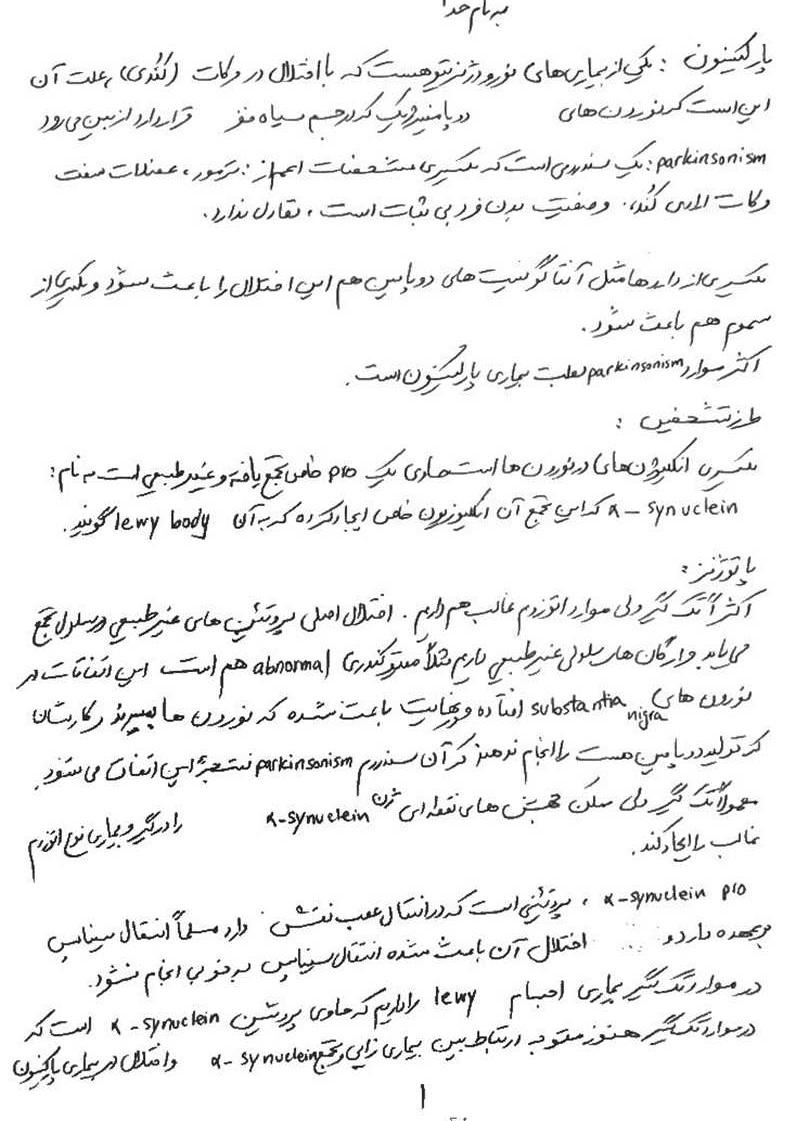 به نام خدا
پارکینسون : یکی از بیماری های نورودژنریتیو هست که با اختلال در حرکات (کُندی) ، علت آن
این است که نورون های دوپامینرژیک که در جسم سیاه مغز قرار دارد از بین می رود
parkinsonism : یک سندرمی است که یکسری مشخصات اعم از : ترمور ، عضلات سفت
حرکات ارادی کُند ، وضعیت بدن فرد بی ثبات است ، تعادل ندارد.
یکسری از داروها مثل آنتاگونیست های دوپامین هم این اختلال را باعث شود و یکسری از
سموم هم باعث شود.
اکثر موارد parkinsonism بعلت بیماری پارکینسون است.
طرز تشخیص :
یکسری انکلوژن های در نورون ها است حاوی یک pro خاص تجمع یافته و غیرطبیعی است به نام :
α – synuclein که این تجمع آن انکلوزیون خاص ایجاد کرده که به آن lewy body گویند.
پاتوژنز :
اکثراً تک گیر ولی موارد اتوزوم غالب هم داریم . اختلال اصلی پروتئین های غیرطبیعی در سلول تجمع
می یابد و ارگان های سلولی غیرطبیعی داریم مثلاً میتوکندری abnormal هم است این اتفاقات در
نورون های substantia nigra افتاده و در نهایت باعث شده که نورون ها بمیرند و کارشان
که تولید دوپامین هست را انجام ندهند که آن سندرم parkinsonism نتیجۀ این اتفاق می شود.
معمولاً تک گیر ولی ممکن جهش های نقطه ای ژن α-synuclein را درگیر و بیماری نوع اتوزوم
غالب را ایجاد کند.
α-synuclein pro ، پروتئینی است که در انتقال عصب نقش دارد مسلماً انتقال سیناپس
برعهده دارد و اختلال آن باعث شده انتقال سیناپس به خوبی انجام نشود.
در موارد تک گیر بیماری اجسام lewy را داریم که حاوی پروتئین α-synuclein است که
در موارد تک گیر هنوز متوجه ارتباط بین بیماری زایی و تجمع α-synuclein و اختلال در بیماری پارکینسون
1